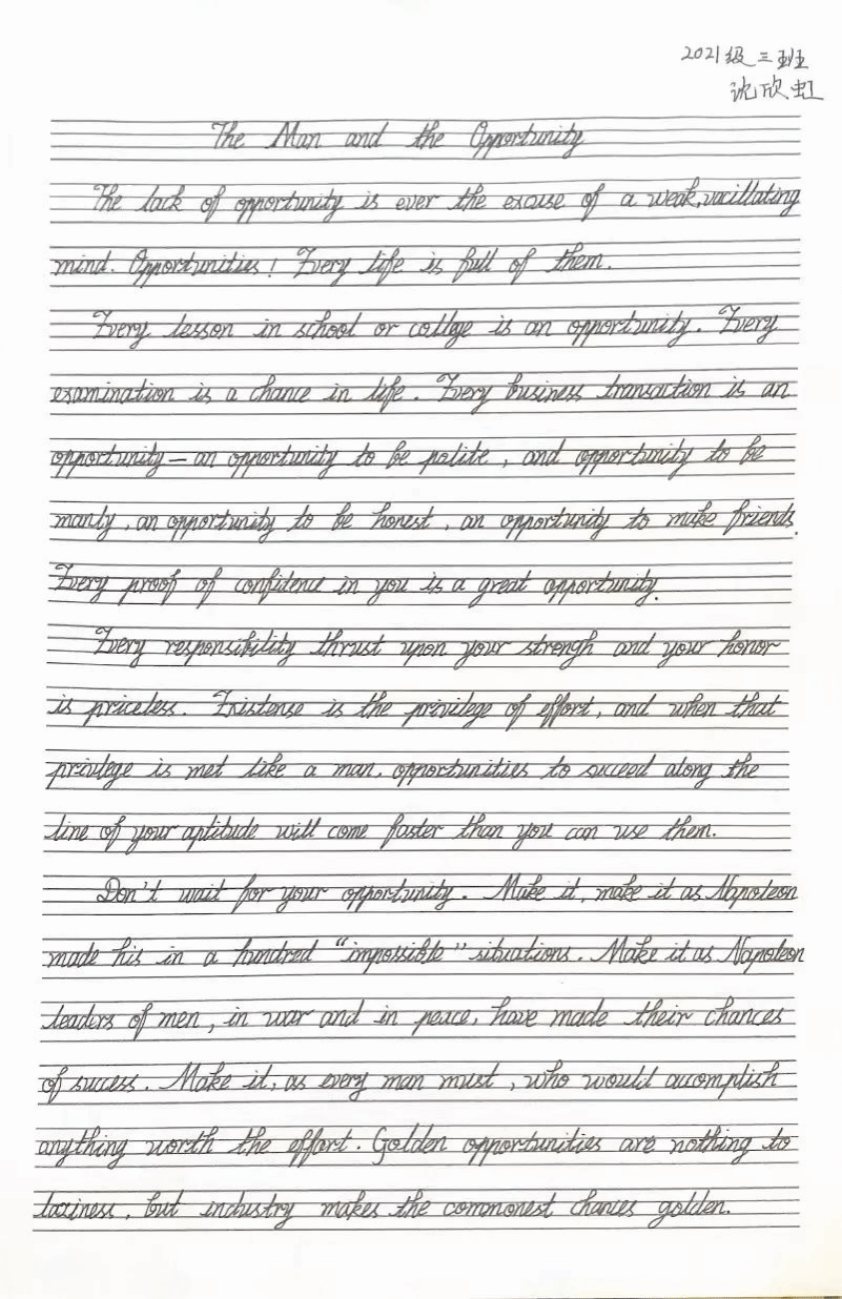 2021级三班
沈欣虹
The Man and the Opportunity
The lack of opportunity is ever the excuse of a weak,vacillating
mind. Opportunities! Every life is full of them.
Every lesson in school or college is an opportunity. Every
examination is a chance in life. Every business transaction is an
opportunity—an opportunity to be polite, and opportunity to be
manly, an opportunity to be honest, an opportunity to make friends.
Every proof of confidence in you is a great opportunity.
Every responsibility thrust upon your strengh and your honor
is priceless. Existense is the privilege of effort, and when that
privilege is met like a man, opportunities to succeed along the
line of your aptitude will come faster than you can use them.
Don't wait for your opportunity. Make it, make it as Napoleon
made his in a hundred "impossible" situations. Make it as Napoleon
leaders of men, in war and in peace, have made their chances
of success. Make it, as every man must, who would accomplish
anything worth the effort. Golden opportunities are nothing to
laziness, but industry makes the commonest chances golden.